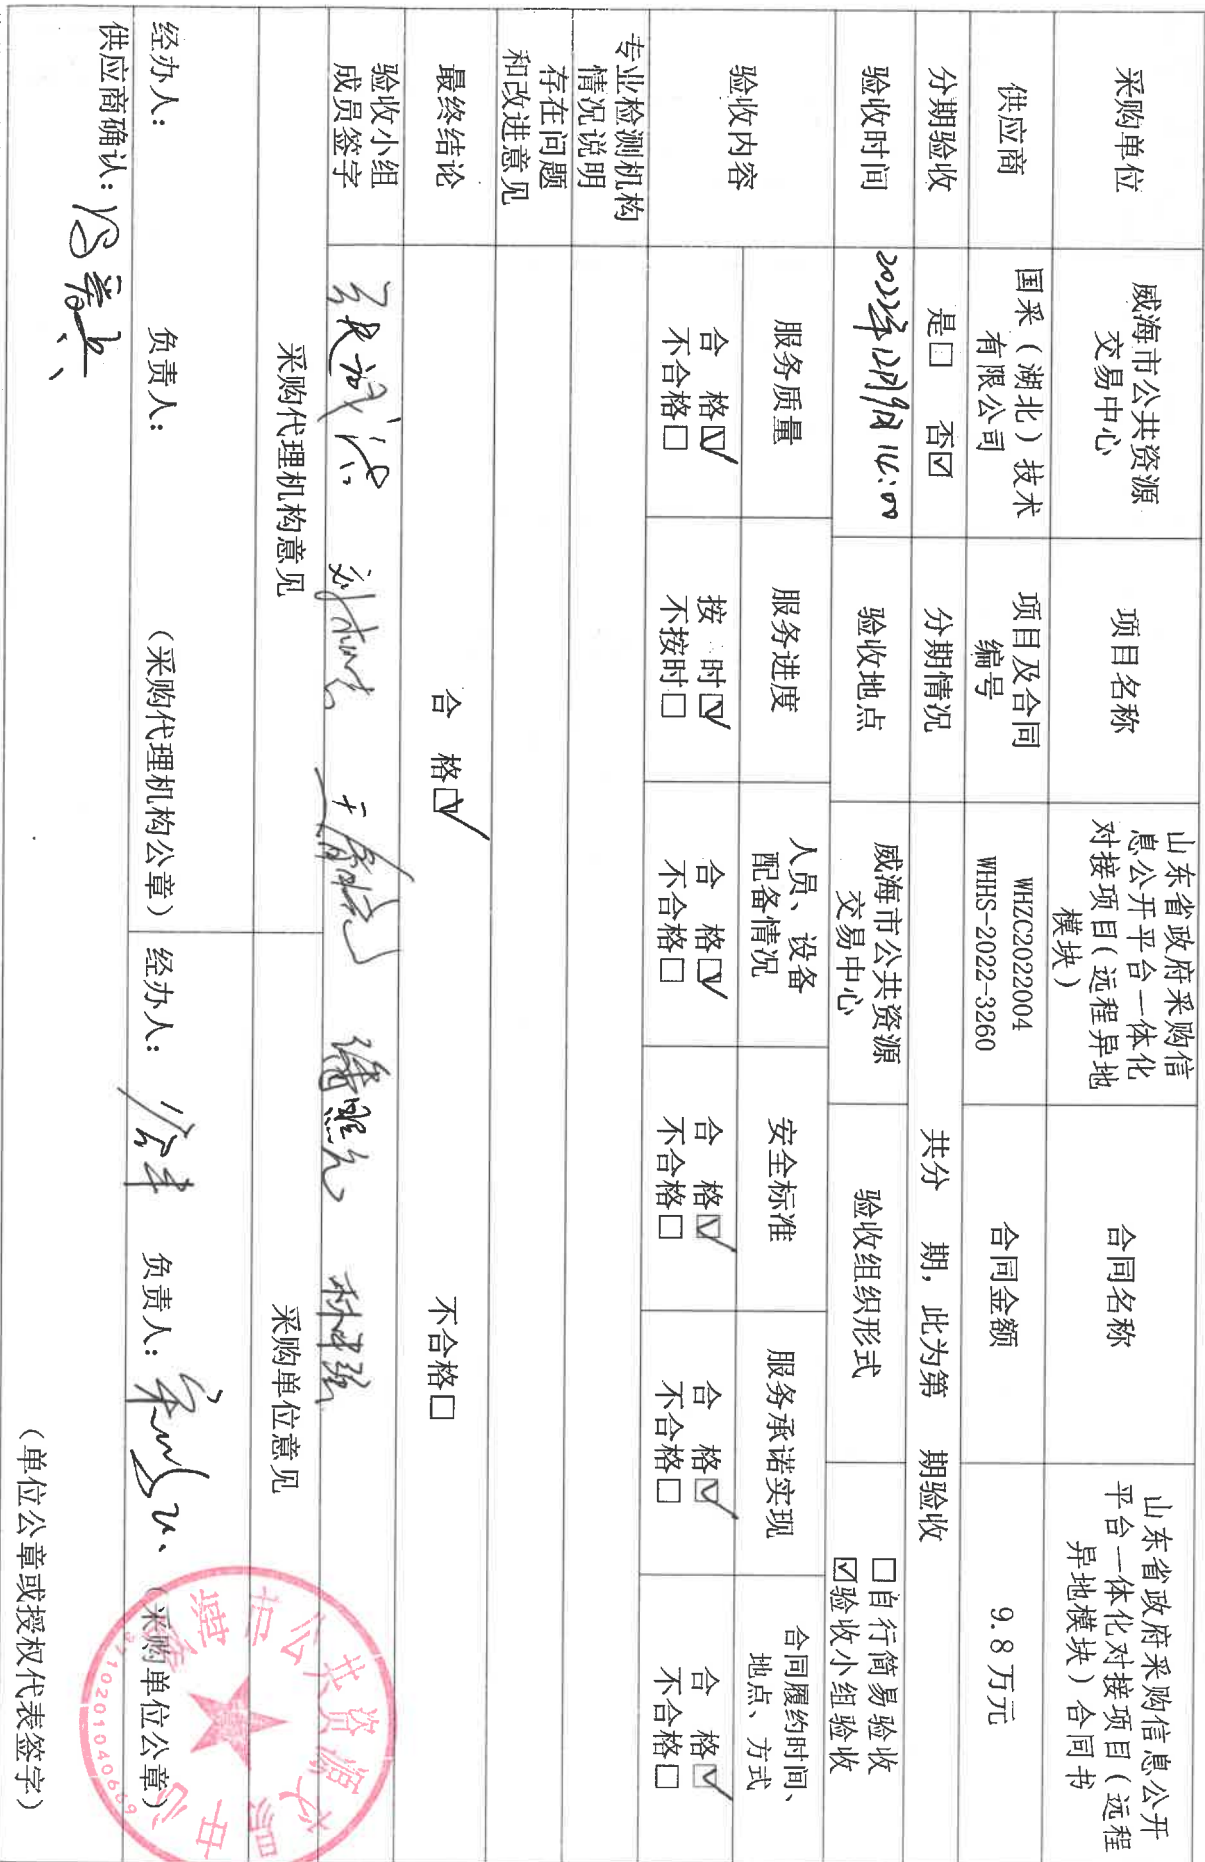 采购单位
威海市公共资源
交易中心
项目名称
山东省政府采购信
息公开平台一体化
对接项目（远程异地
模块）
合同名称
山东省政府采购信息公开
平台一体化对接项目（远程
异地模块）合同书
供应商
国采（湖北）技术
有限公司
项目及合同
编号
WHZC2022004
WHHS-2022-3260
合同金额
9.8 万元
分期验收
是□ 否☑
分期情况
共分 期，此为第 期验收
验收时间
2022年12月9日 14:00
验收地点
威海市公共资源
交易中心
验收组织形式
□自行简易验收
☑验收小组验收
验收内容
服务质量
服务进度
人员、设备
配备情况
安全标准
服务承诺实现
合同履约时间、
地点、方式
合 格☑
不合格□
按 时☑
不按时□
合 格☑
不合格□
合 格☑
不合格□
合 格☑
不合格□
合 格☑
不合格□
专业检测机构
情况说明
存在问题
和改进意见
最终结论
合 格☑
不合格□
验收小组
成员签字
采购代理机构意见
采购单位意见
经办人：
负责人：
（采购代理机构公章）
经办人：
负责人：
（采购单位公章）
威海市公共资源交易中心
供应商确认：
（单位公章或授权代表签字）